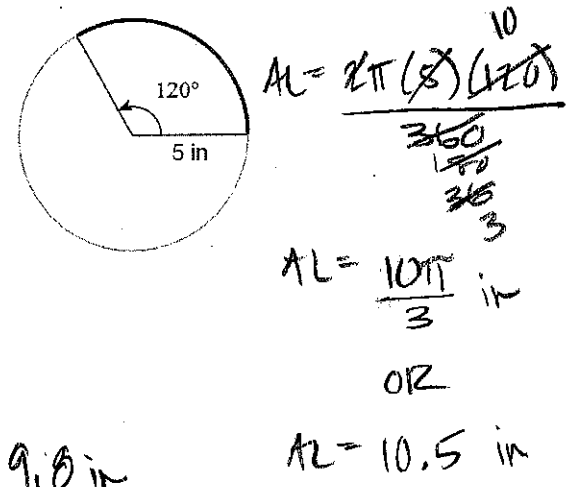 120°
5 in
AL = 2π(5)(120)
10
360
180
36
3
AL = 10π/3 in
OR
AL = 10.5 in
9.8 in